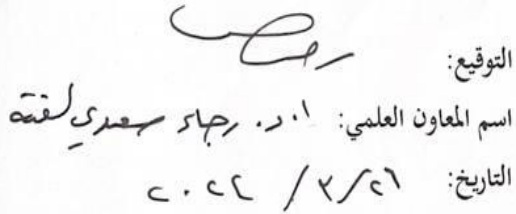 التوقيع:
اسم المعاون العلمي: ا.د. رجاء سعدي لفتة
التاريخ: ٢٦ / ٣ / ٢٠٢٢